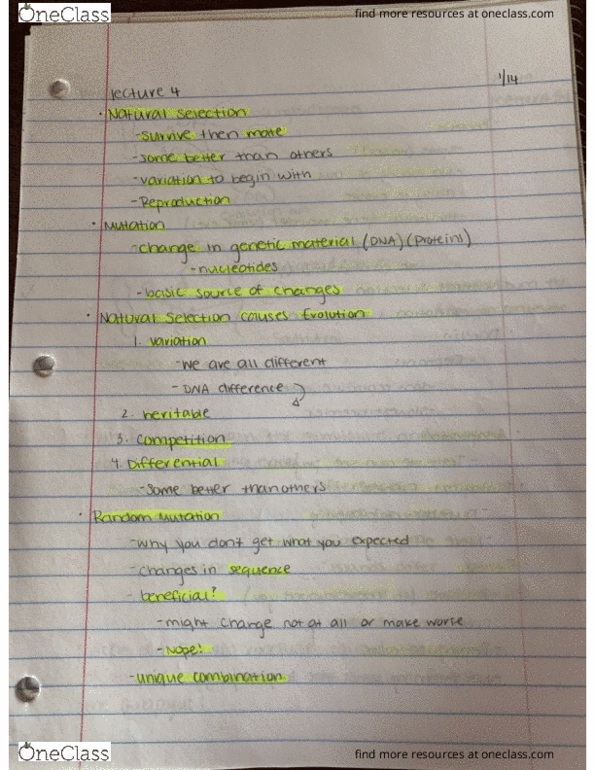 OneClass
find more resources at oneclass.com
lecture 4
1/14
· Natural Selection
-survive then mate
-some better than others
-variation to begin with
-Reproduction
· Mutation
-change in genetic material (DNA) (Proteins)
-nucleotides
-basic source of changes
· Natural Selection causes Evolution
1. variation
-we are all different
-DNA difference
2. heritable
3. competition
4. Differential
-some better than others
· Random Mutation
-why you don't get what you expected
-changes in sequence
-beneficial?
-might change not at all or make worse
-Nope!
-unique combination
OneClass
find more resources at oneclass.com